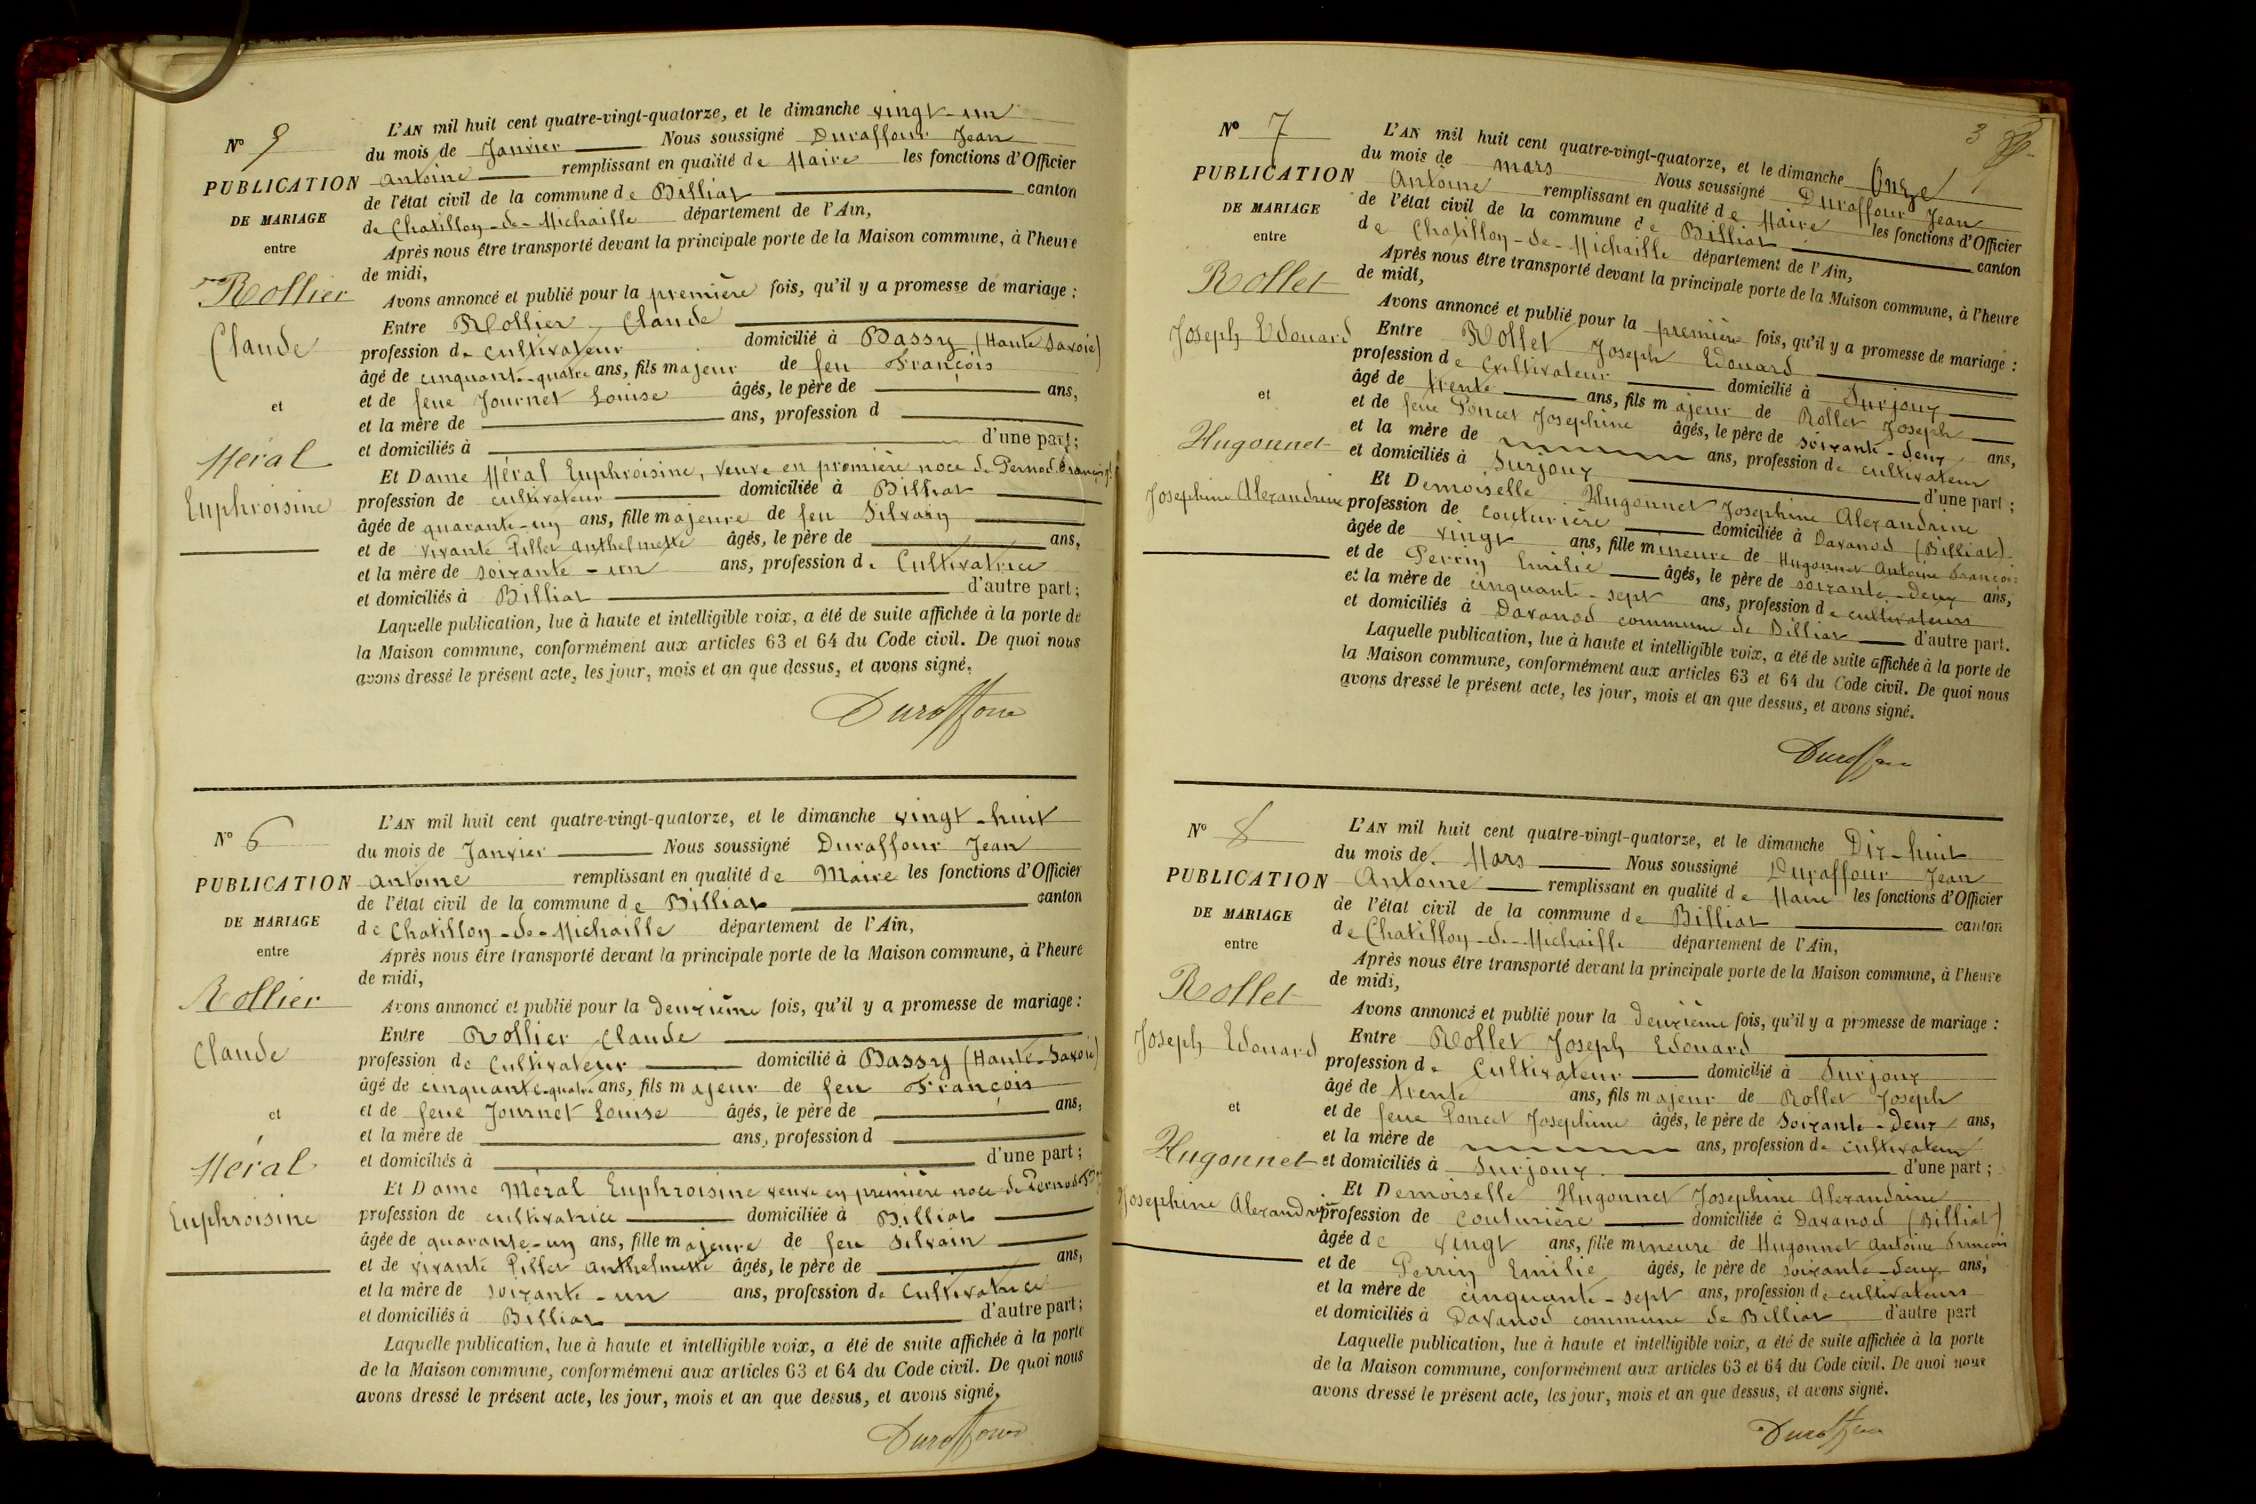 N° 5
PUBLICATION
DE MARIAGE
entre
Rollier
Claude
et
Méral
Euphroisine
L'AN mil huit cent quatre-vingt-quatorze, et le dimanche vingt-un
du mois de Janvier Nous soussigné Duraffour Jean
Antoine remplissant en qualité de Maire les fonctions d'Officier
de l'état civil de la commune de Billiat canton
de Chatillon-de-Michaille département de l'Ain,
Après nous être transporté devant la principale porte de la Maison commune, à l'heure
de midi,
Avons annoncé et publié pour la première fois, qu'il y a promesse de mariage :
Entre Rollier Claude
profession de cultivateur domicilié à Bassy (Haute Savoie)
âgé de cinquante-quatre ans, fils majeur de feu François
et de feue Journet Louise âgés, le père de ans,
et la mère de ans, profession d
et domiciliés à d'une part;
Et Dame Méral Euphroisine, veuve en première noce de Pernod François
profession de cultivateur domiciliée à Billiat
âgée de quarante-un ans, fille majeure de feu Silvain
et de vivante Pillet Anthelmette âgés, le père de ans,
et la mère de soixante-un ans, profession de Cultivatrice
et domiciliés à Billiat d'autre part;
Laquelle publication, lue à haute et intelligible voix, a été de suite affichée à la porte de
la Maison commune, conformément aux articles 63 et 64 du Code civil. De quoi nous
avons dressé le présent acte, les jour, mois et an que dessus, et avons signé.
Duraffour
N° 6
PUBLICATION
DE MARIAGE
entre
Rollier
Claude
et
Méral
Euphroisine
L'AN mil huit cent quatre-vingt-quatorze, et le dimanche vingt-huit
du mois de Janvier Nous soussigné Duraffour Jean
Antoine remplissant en qualité de Maire les fonctions d'Officier
de l'état civil de la commune de Billiat canton
de Chatillon-de-Michaille département de l'Ain,
Après nous être transporté devant la principale porte de la Maison commune, à l'heure
de midi,
Avons annoncé et publié pour la deuxième fois, qu'il y a promesse de mariage :
Entre Rollier Claude
profession de Cultivateur domicilié à Bassy (Haute-Savoie)
âgé de cinquante-quatre ans, fils majeur de feu François
et de feue Journet Louise âgés, le père de ans,
et la mère de ans, profession d
et domiciliés à d'une part;
Et Dame Méral Euphroisine veuve en première noce de Pernod
profession de cultivatrice domiciliée à Billiat
âgée de quarante-un ans, fille majeure de feu Silvain
et de vivante Pillet Anthelmette âgés, le père de ans,
et la mère de soixante-un ans, profession de Cultivatrice
et domiciliés à Billiat d'autre part;
Laquelle publication, lue à haute et intelligible voix, a été de suite affichée à la porte
de la Maison commune, conformément aux articles 63 et 64 du Code civil. De quoi nous
avons dressé le présent acte, les jour, mois et an que dessus, et avons signé.
Duraffour
3
N° 7
PUBLICATION
DE MARIAGE
entre
Rollet
Joseph Edouard
et
Hugonnet
Josephine Alexandrine
L'AN mil huit cent quatre-vingt-quatorze, et le dimanche Onze
du mois de mars Nous soussigné Duraffour Jean
Antoine remplissant en qualité de Maire les fonctions d'Officier
de l'état civil de la commune de Billiat canton
de Chatillon-de-Michaille département de l'Ain,
Après nous être transporté devant la principale porte de la Maison commune, à l'heure
de midi,
Avons annoncé et publié pour la première fois, qu'il y a promesse de mariage :
Entre Rollet Joseph Edouard
profession de Cultivateur domicilié à Surjoux
âgé de trente ans, fils majeur de Rollet Joseph
et de feue Poncet Josephine âgés, le père de soixante-deux ans,
et la mère de ans, profession de cultivateur
et domiciliés à Surjoux d'une part;
Et Demoiselle Hugonnet Josephine Alexandrine
profession de couturière domiciliée à Davanod (Billiat)
âgée de vingt ans, fille mineure de Hugonnet Antoine François
et de Perrin Emilie âgés, le père de soixante-deux ans,
et la mère de cinquante-sept ans, profession de cultivateurs
et domiciliés à Davanod commune de Billiat d'autre part.
Laquelle publication, lue à haute et intelligible voix, a été de suite affichée à la porte de
la Maison commune, conformément aux articles 63 et 64 du Code civil. De quoi nous
avons dressé le présent acte, les jour, mois et an que dessus, et avons signé.
Duraffour
N° 8
PUBLICATION
DE MARIAGE
entre
Rollet
Joseph Edouard
et
Hugonnet
Josephine Alexandrine
L'AN mil huit cent quatre-vingt-quatorze, et le dimanche Dix-huit
du mois de Mars Nous soussigné Duraffour Jean
Antoine remplissant en qualité de Maire les fonctions d'Officier
de l'état civil de la commune de Billiat canton
de Chatillon-de-Michaille département de l'Ain,
Après nous être transporté devant la principale porte de la Maison commune, à l'heure
de midi,
Avons annoncé et publié pour la deuxième fois, qu'il y a promesse de mariage :
Entre Rollet Joseph Edouard
profession de Cultivateur domicilié à Surjoux
âgé de trente ans, fils majeur de Rollet Joseph
et de feue Poncet Josephine âgés, le père de Soixante-Deux ans,
et la mère de ans, profession de cultivateur
et domiciliés à Surjoux d'une part;
Et Demoiselle Hugonnet Josephine Alexandrine
profession de Couturière domiciliée à Davanod (Billiat)
âgée de vingt ans, fille mineure de Hugonnet Antoine François
et de Perrin Emilie âgés, le père de soixante-deux ans,
et la mère de cinquante-sept ans, profession de cultivateurs
et domiciliés à Davanod commune de Billiat d'autre part
Laquelle publication, lue à haute et intelligible voix, a été de suite affichée à la porte
de la Maison commune, conformément aux articles 63 et 64 du Code civil. De quoi nous
avons dressé le présent acte, les jour, mois et an que dessus, et avons signé.
Duraffour